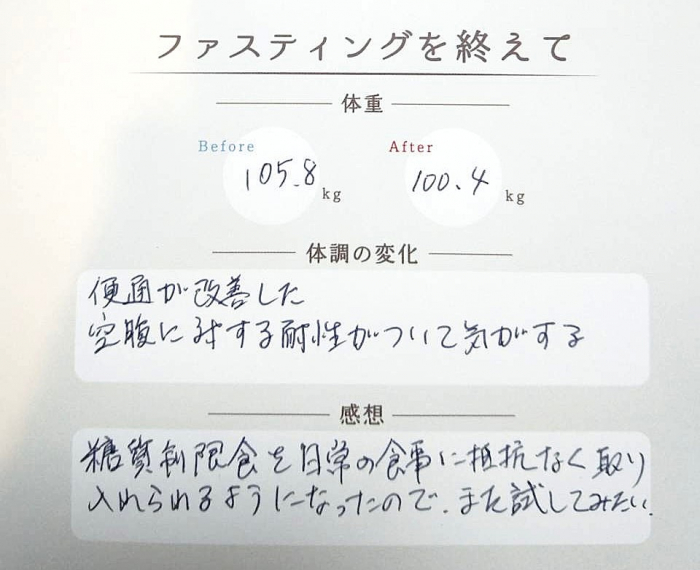 ファスティングを終えて
体重
Before
After
105.8 kg
100.4 kg
体調の変化
便通が改善した
空腹に対する耐性がついて気がする
感想
糖質制限食を日常の食事に抵抗なく取り
入れられるようになったので、また試してみたい.